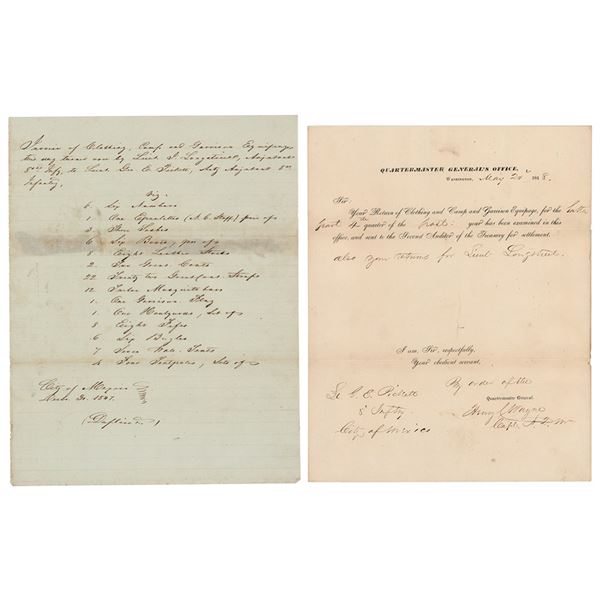 Invoice of Clothing, Camp and Garrison Equipage
this day turned over by Lieut J. Longstreet, Adjutant
8th Infy, to Lieut Geo. E. Pickett, Actg Adjutant 8th
Infantry.
Viz:
6. Six Numbers
1. One Epaulettes (N.C. Staff), pair of
3 Three Sashes
6 Six pair of
8 Eight Leather Stocks
2. Two Great Coats
22 Twenty two Great Coat Straps
12 Twelve Mosquito bars
1. One Garrison Flag
1. One set of
8 Eight Fifes
6 Six Bugles
7 Seven Wall Tents
4 Four Sets of
City of Mexico
30. 1847.
(Duplicate)
QUARTERMASTER GENERAL'S OFFICE,
WASHINGTON, May 20 1848.
Sir,
Your Return of Clothing and Camp and Garrison Equipage, for the
part 4th quarter of the past year has been examined in this
office, and sent to the Second Auditor of the Treasury for settlement.
also your returns for Lieut Longstreet.
I am, Sir, respectfully,
Your obedient servant,
By order of the
Quartermaster General.
Lt G. E. Pickett
8 Infty
City of Mexico
Henry C Wayne
Capt.